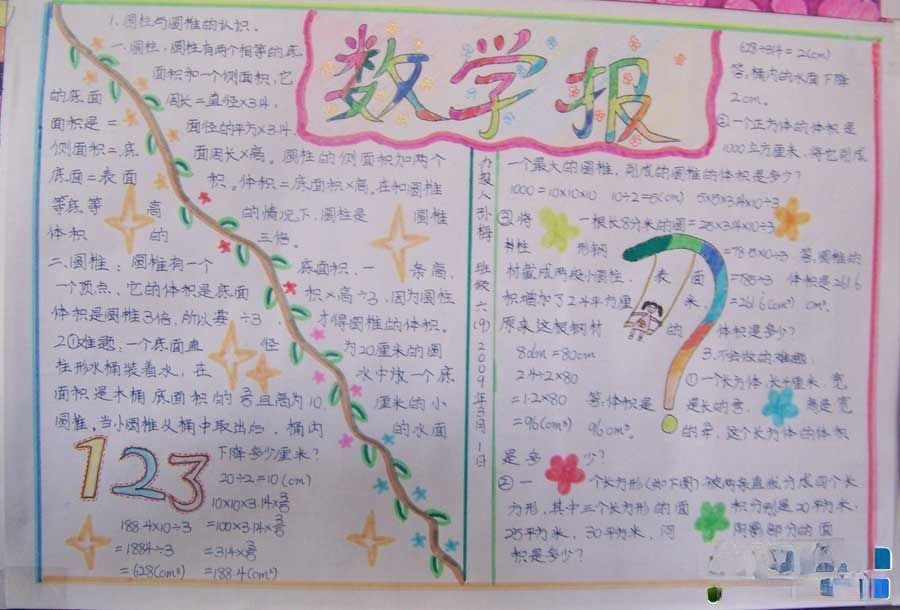 数学报
1、圆柱与圆椎的认识。
一、圆柱：圆柱有两个相等的底
面积和一个侧面积，它
的底面 周长=直径×3.14，
面积是= 面径的平方×3.14，
侧面积=底 面周长×高。圆柱的侧面积加两个
底面=表面 积。体积=底面积×高。在和圆椎
等底等 高 的情况下，圆柱是 圆椎
体积 的 三倍。
二、圆椎：圆椎有一个 底面积，一 条高，
一个顶点，它的体积是底面 积×高÷3，因为圆柱
体积是圆椎3倍，所以要÷3， 才得圆椎的体积。
2①难题：一个底面直 径 为20厘米的圆
柱形水桶装着水，在 水中放一个底
面积是木桶底面积的3/5且高为10 厘米的小
圆椎，当小圆椎从桶中取出后，桶内 的水面
下降多少厘米？
123
20÷2=10(cm)
10×10×3.14×3/5
188.4×10÷3 =100×3.14×3/5
=1884÷3 =314×3/5
=628(cm³) =188.4(cm²)
办报人孙梅 班级六(9) 2009年3月1日
628÷314=2(cm)
答，桶内的水面下降
2cm。
②一个正方体的体积是
1000立方厘米，将它削成
一个最大的圆椎，削成的圆椎的体积是多少？
1000=10×10×10 10÷2=5(cm) 5×5×3.14×10÷3
③将 一根长8分米的圆 =25×3.14×10÷3
柱 形钢 =78.5×10÷3 答，圆椎的
材截成两段小圆柱，表 面 =785÷3 体积是261.6
积增加了2.4平方厘 米 =261.6(cm³) cm³。
原来这根钢材 的 体积是多少？
8dm=80cm
2.4÷2×80
=1.2×80 答，体积是
=96(cm³) 96cm³。
3.不会做的难题：
①一个长方体，长4厘米，宽
是长的 高是宽
的 这个长方体的体积
是多 少？
②一 个长方形(如下图)，被两条直线分成四个长
方形，其中三个长方形的面 积分别是20平方米，
25平方米，30平方米，问 阴影部分的面
积是多少？